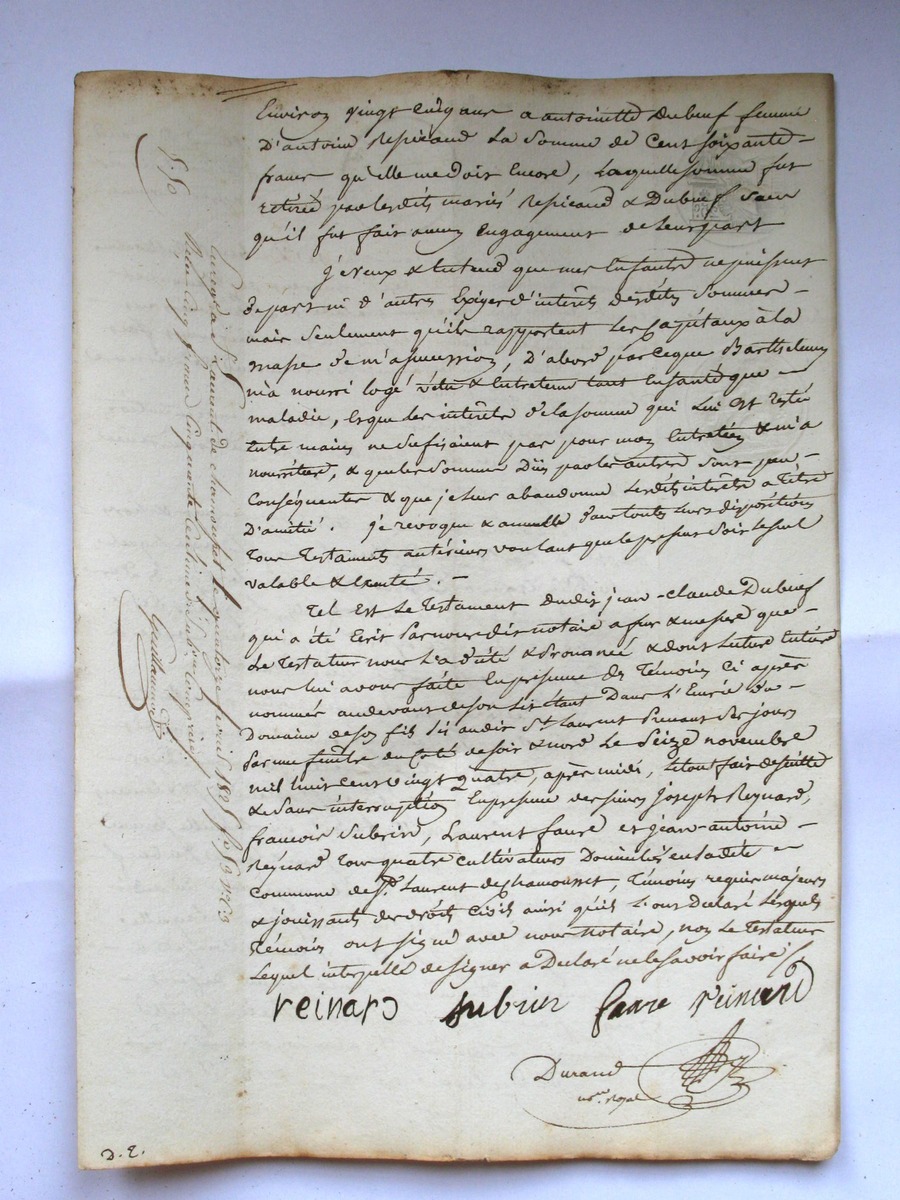 Environ vingt cinq ans a antoinette Dubeuf femme
D'antoine Repicaud La Somme de Cent soixante
francs qu'elle me doit Encore, Laquelle somme fut
retirée par lesdits mariés Repicaud & Dubeuf Sans
qu'il fut fait aucun Engagement de leur part
Je veux & Entend que mes Enfants ne puissent
de part ni d'autres Exiger d'intérêts desdites Sommes
mais Seulement qu'ils rapportent les Capitaux à la
masse de m'a succession, D'abord parceque Barthelemy
m'a nourri logé vetu & Entretenu tant En santé que
maladie, Es que les intérêts de la somme qui Lui Est restée
Entre mains ne sufisaient pas pour mon Entretien & m'a
nourriture, & que les Sommes Dües par les autres Sont peu
Conséquentes & que je leur abandonne lesdits intérêts a titre
D'amitié. Je revoque & annulle
tous Testaments antérieurs voulant que le present Soit le seul
valable & Exenté.
Tel Est Le Testament dudit jean-claude Dubeuf
qui a été Ecrit Par nous dit notaire a fur & mesure que
Le Testateur nous L'a dicté & Prononcé & dont lecture Entière
nous lui avons faite En présence des Témoins Ci après
nommés au devant de son Lit Etant Dans L'
Domaine de son fils Sis audit St Laurent Prenant Ses jours
Par une fenêtre du Coté de soir & nord Le Seize novembre
mil huit cent vingt quatre, après midi, Le tout fait de suitte
& Sans interruption En présence des sieurs Joseph Reynard,
francois Subrin, Laurent faure et jean-antoine
Reynard tous quatre cultivateurs Domiciliés En ladite
Commune de St Laurent de Chamousset, Témoins requis majeurs
& jouissants des droits Civils ainsi qu'ils L'ont Déclaré Lesquels
Témoins ont signé avec nous notaire, non Le Testateur
Lequel interpellé de signer a Déclaré ne le savoir faire
reinard Subrin faure reinard
Durand
nore. royal
Enregistré à St Laurent de chamousset le quatorze fevrier 1825 fo 59
Reçu cinq francs cinquante centimes
Guillaume
5.50
D.E.